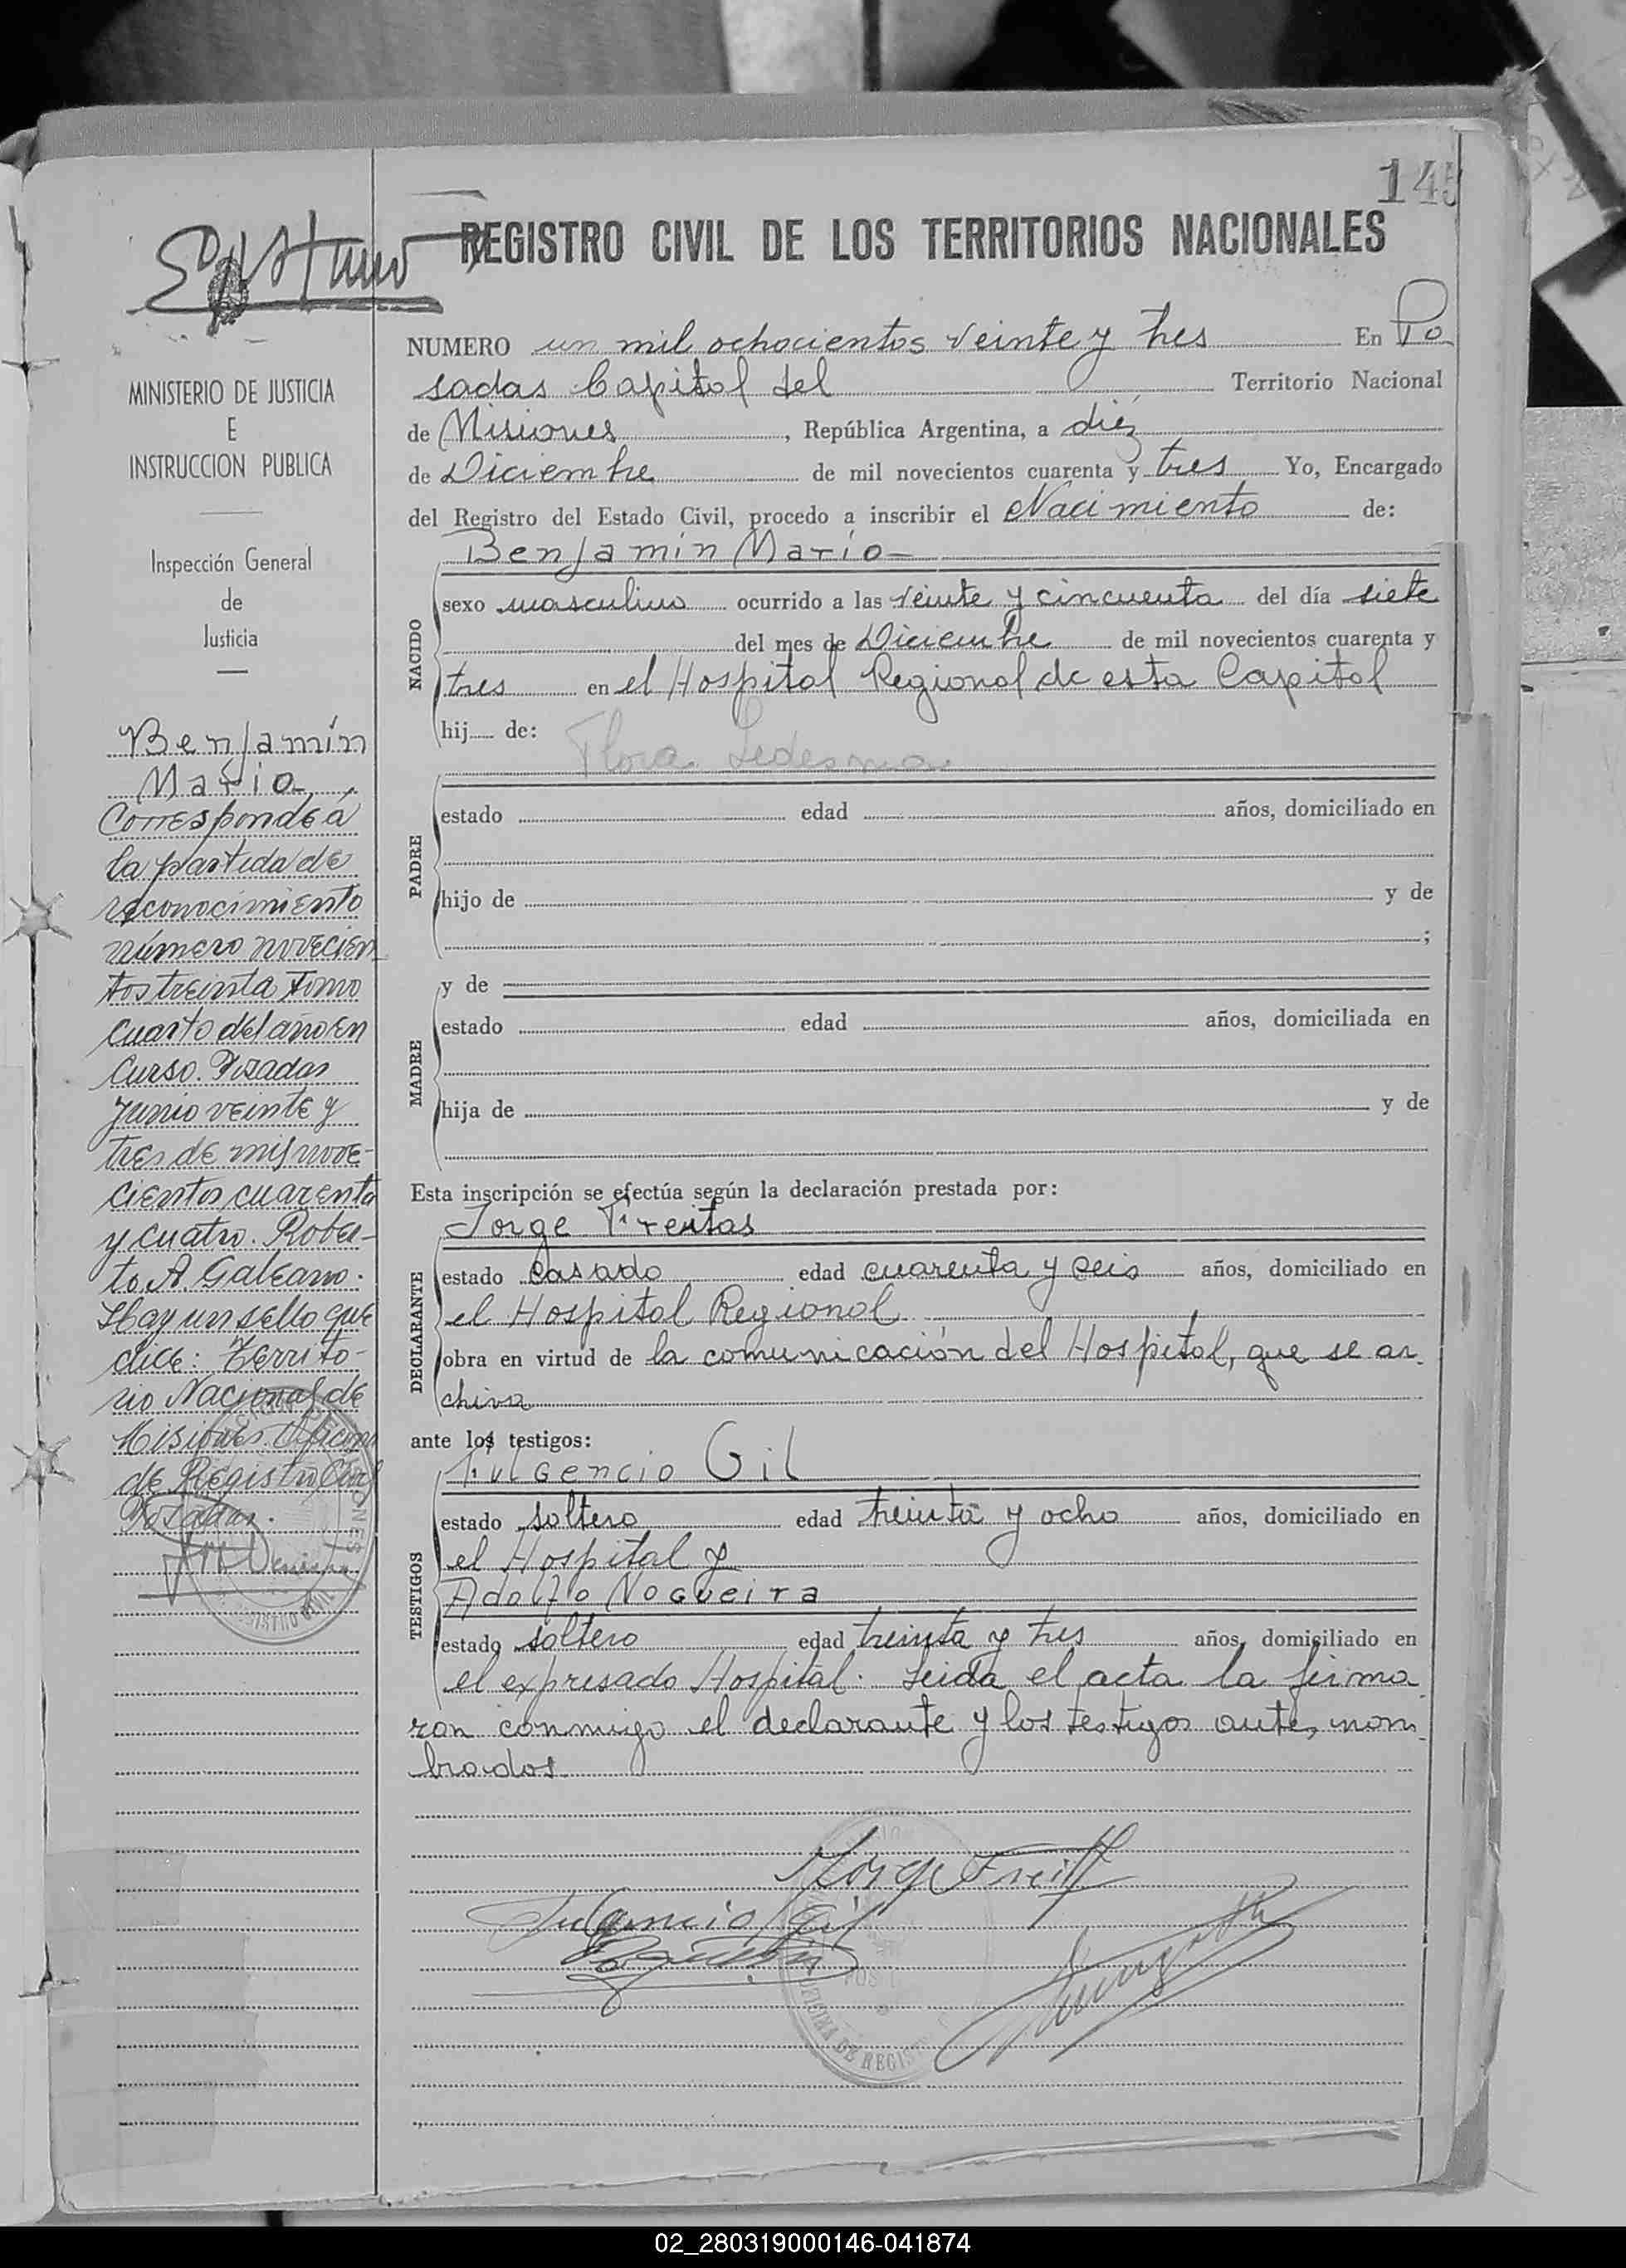 145
REGISTRO CIVIL DE LOS TERRITORIOS NACIONALES
MINISTERIO DE JUSTICIA
E
INSTRUCCION PUBLICA
Inspección General
de
Justicia
Benjamín
Mario
Corresponde á
la partida de
reconocimiento
número novecien
tos treinta tomo
cuarto del año en
curso. Posadas
Junio veinte y
tres de mil nove-
cientos cuarenta
y cuatro. Rober-
to A. Galeano.
Hay un sello que
dice: Territo-
rio Nacional de
Misiones. Oficina
de Registro Civil
Posadas.
NUMERO un mil ochocientos veinte y tres En Po
sadas Capital del Territorio Nacional
de Misiones, República Argentina, a diéz
de Diciembre de mil novecientos cuarenta y tres Yo, Encargado
del Registro del Estado Civil, procedo a inscribir el Nacimiento de:
Benjamín Mario-
NACIDO
sexo masculino ocurrido a las veinte y cincuenta del día siete
del mes de Diciembre de mil novecientos cuarenta y
tres en el Hospital Regional de esta Capital
hij de:
Flora Ledesma
PADRE
estado edad años, domiciliado en
hijo de y de
;
MADRE
y de
estado edad años, domiciliada en
hija de y de
Esta inscripción se efectúa según la declaración prestada por:
Jorge Freitas
DECLARANTE
estado casado edad cuarenta y seis años, domiciliado en
el Hospital Regional
obra en virtud de la comunicación del Hospital, que se ar
chiva
ante los testigos:
Fulgencio Gil
TESTIGOS
estado soltero edad treinta y ocho años, domiciliado en
el Hospital y
Adolfo Nogueira
estado soltero edad treinta y tres años, domiciliado en
el expresado Hospital. Leida el acta la firma
ron conmigo el declarante y los testigos antes nom
brados
Jorge Freitas
Fulgencio Gil
OFICINA DE REGIS
02_280319000146-041874